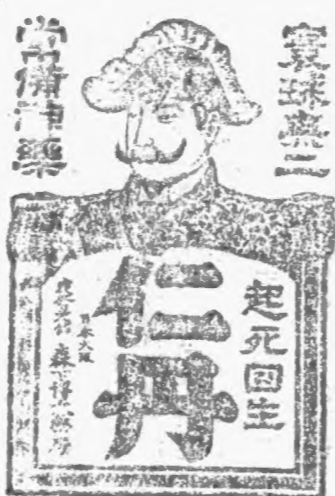 寰球無二
常備神藥
起死回生
仁丹
日本大阪
森下博藥房